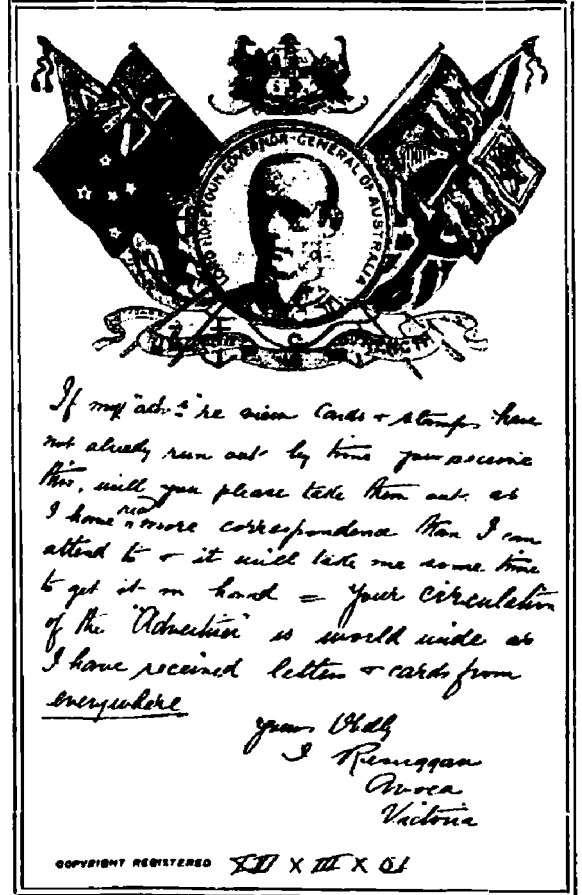 LORD HOPETOUN GOVERNOR-GENERAL OF AUSTRALIA
If my "adv–ts" re view Cards & stamps have
not already run out by time you receive
this, will you please take them out. as
I have now more correspondence than I can
attend to & it will take me some time
to get it in hand = Your circulation
of the "Advertiser" is world wide as
I have received letters & cards from
everywhere
Yours
I
Avoca
Victoria
COPYRIGHT REGISTERED XII X III X 01